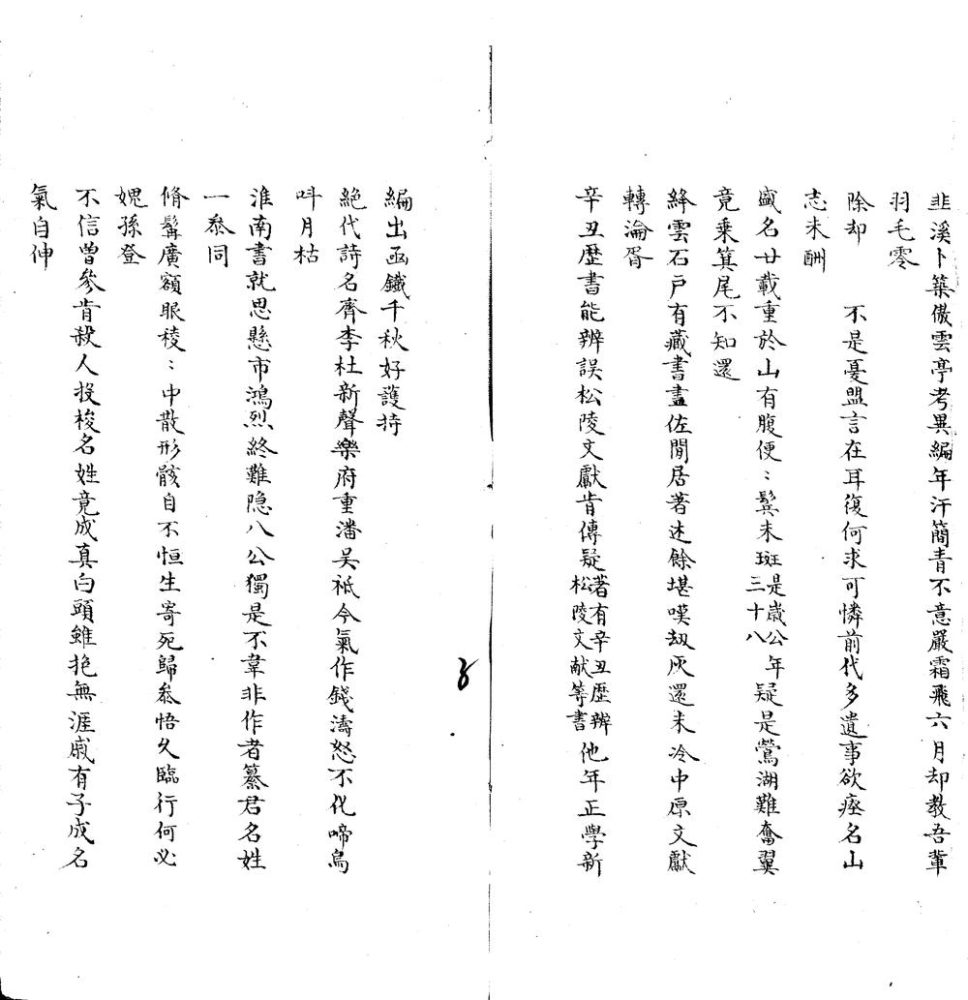 韭溪卜築傲雲亭考異編年汗簡青不意嚴霜飛六月却教吾輩
羽毛零
除却　　不是憂盟言在耳復何求可憐前代多遺事欲瘞名山
志未酬
盛名廿載重於山有腹便〻鬓未斑是歲公年三十八疑是鶯湖難奮翼
竟乘箕尾不知還
絳雲石戶有藏書盡佐閒居著述餘堪嘆刼灰還未冷中原文獻
轉淪胥
辛丑歷書能辨誤松陵文獻肯傳疑著有辛丑歷辨松陵文献等書他年正學新
編出函鐵千秋好護持
絕代詩名齊李杜新聲樂府重潘吳祗今氣作錢濤怒不化啼烏
呌月枯
淮南書就思懸市鴻烈終難隐八公獨是不韋非作者纂君名姓
一叅同
脩髯廣額眼稜〻中散形骸自不恒生寄死歸叅悟久臨行何必
媿孫登
不信曾參肯殺人投梭名姓竟成真白頭雖抱無涯戚有子成名
氣自伸